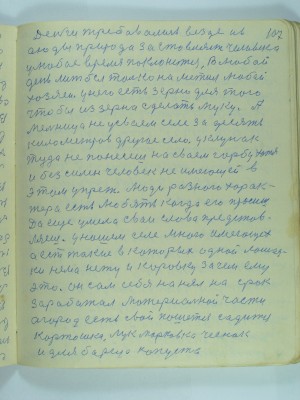 107
Деньги требовались везде из
природа заставляет человека
в любое время поклонится, в любой
день
хозяин у него есть зерно для того
чтобы из зерна сделать муку. А
мелница не у всякем селе за десять
километров другое село, у клунках
туда не понесеш на своем горбу хотя
и без силен человек не имеющей в
этом упреж. Люди разного харак-
тера есть любять когда его просиш
Да еще умела сваи слова предстов-
ляеш. у нашем селе много имеющих
а есть такие в которых одной лошад-
ки нема нету и коровки зачем ему
это. он сам себя нанял на срок
заработал матерялной части
огород есть свой пашется садить
Картошка, лук морковка чеснок
и для борща капуста